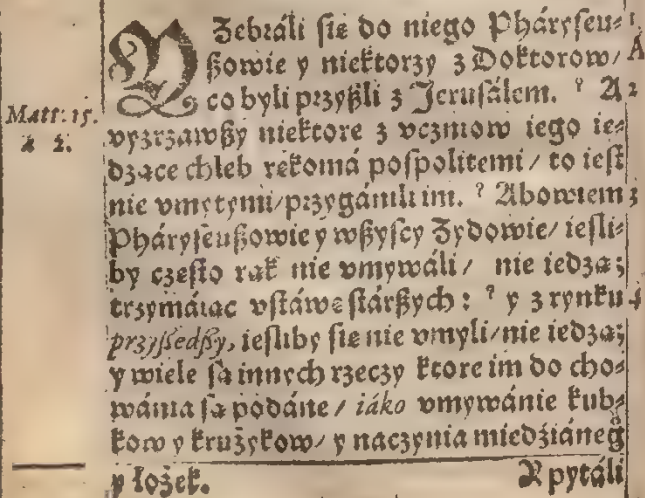 Y Zebráli sie do niego Pháryſeu⸗
ßowie y niektorzy z Doktorow/
co byli przyßli z Jeruſálem. ² A 2
Matt: 15.
vyzrzawßy niektore z vczniow iego ie⸗
dzące chleb rękomá poſpolitemi / to ieſt
nie vmytymi/ przygánili im. ³ Abowiem 3
Pháryſeußowie y wßyſcy Zydowie/ ieſli⸗
by częſto rąk nie vmywáli / nie iedzą;
trzymáiąc vſtáwę ſtárßych: ⁴ y z rynku 4
przyſſedſſy, ieſliby ſie nie vmyli/ nie iedzą;
y wiele ſą innych rzeczy ktore im do cho⸗
wánia ſą podáne / iáko vmywánie kub⸗
kow y krużykow/ y naczynia miedziáneg
y łożek.
pytáli